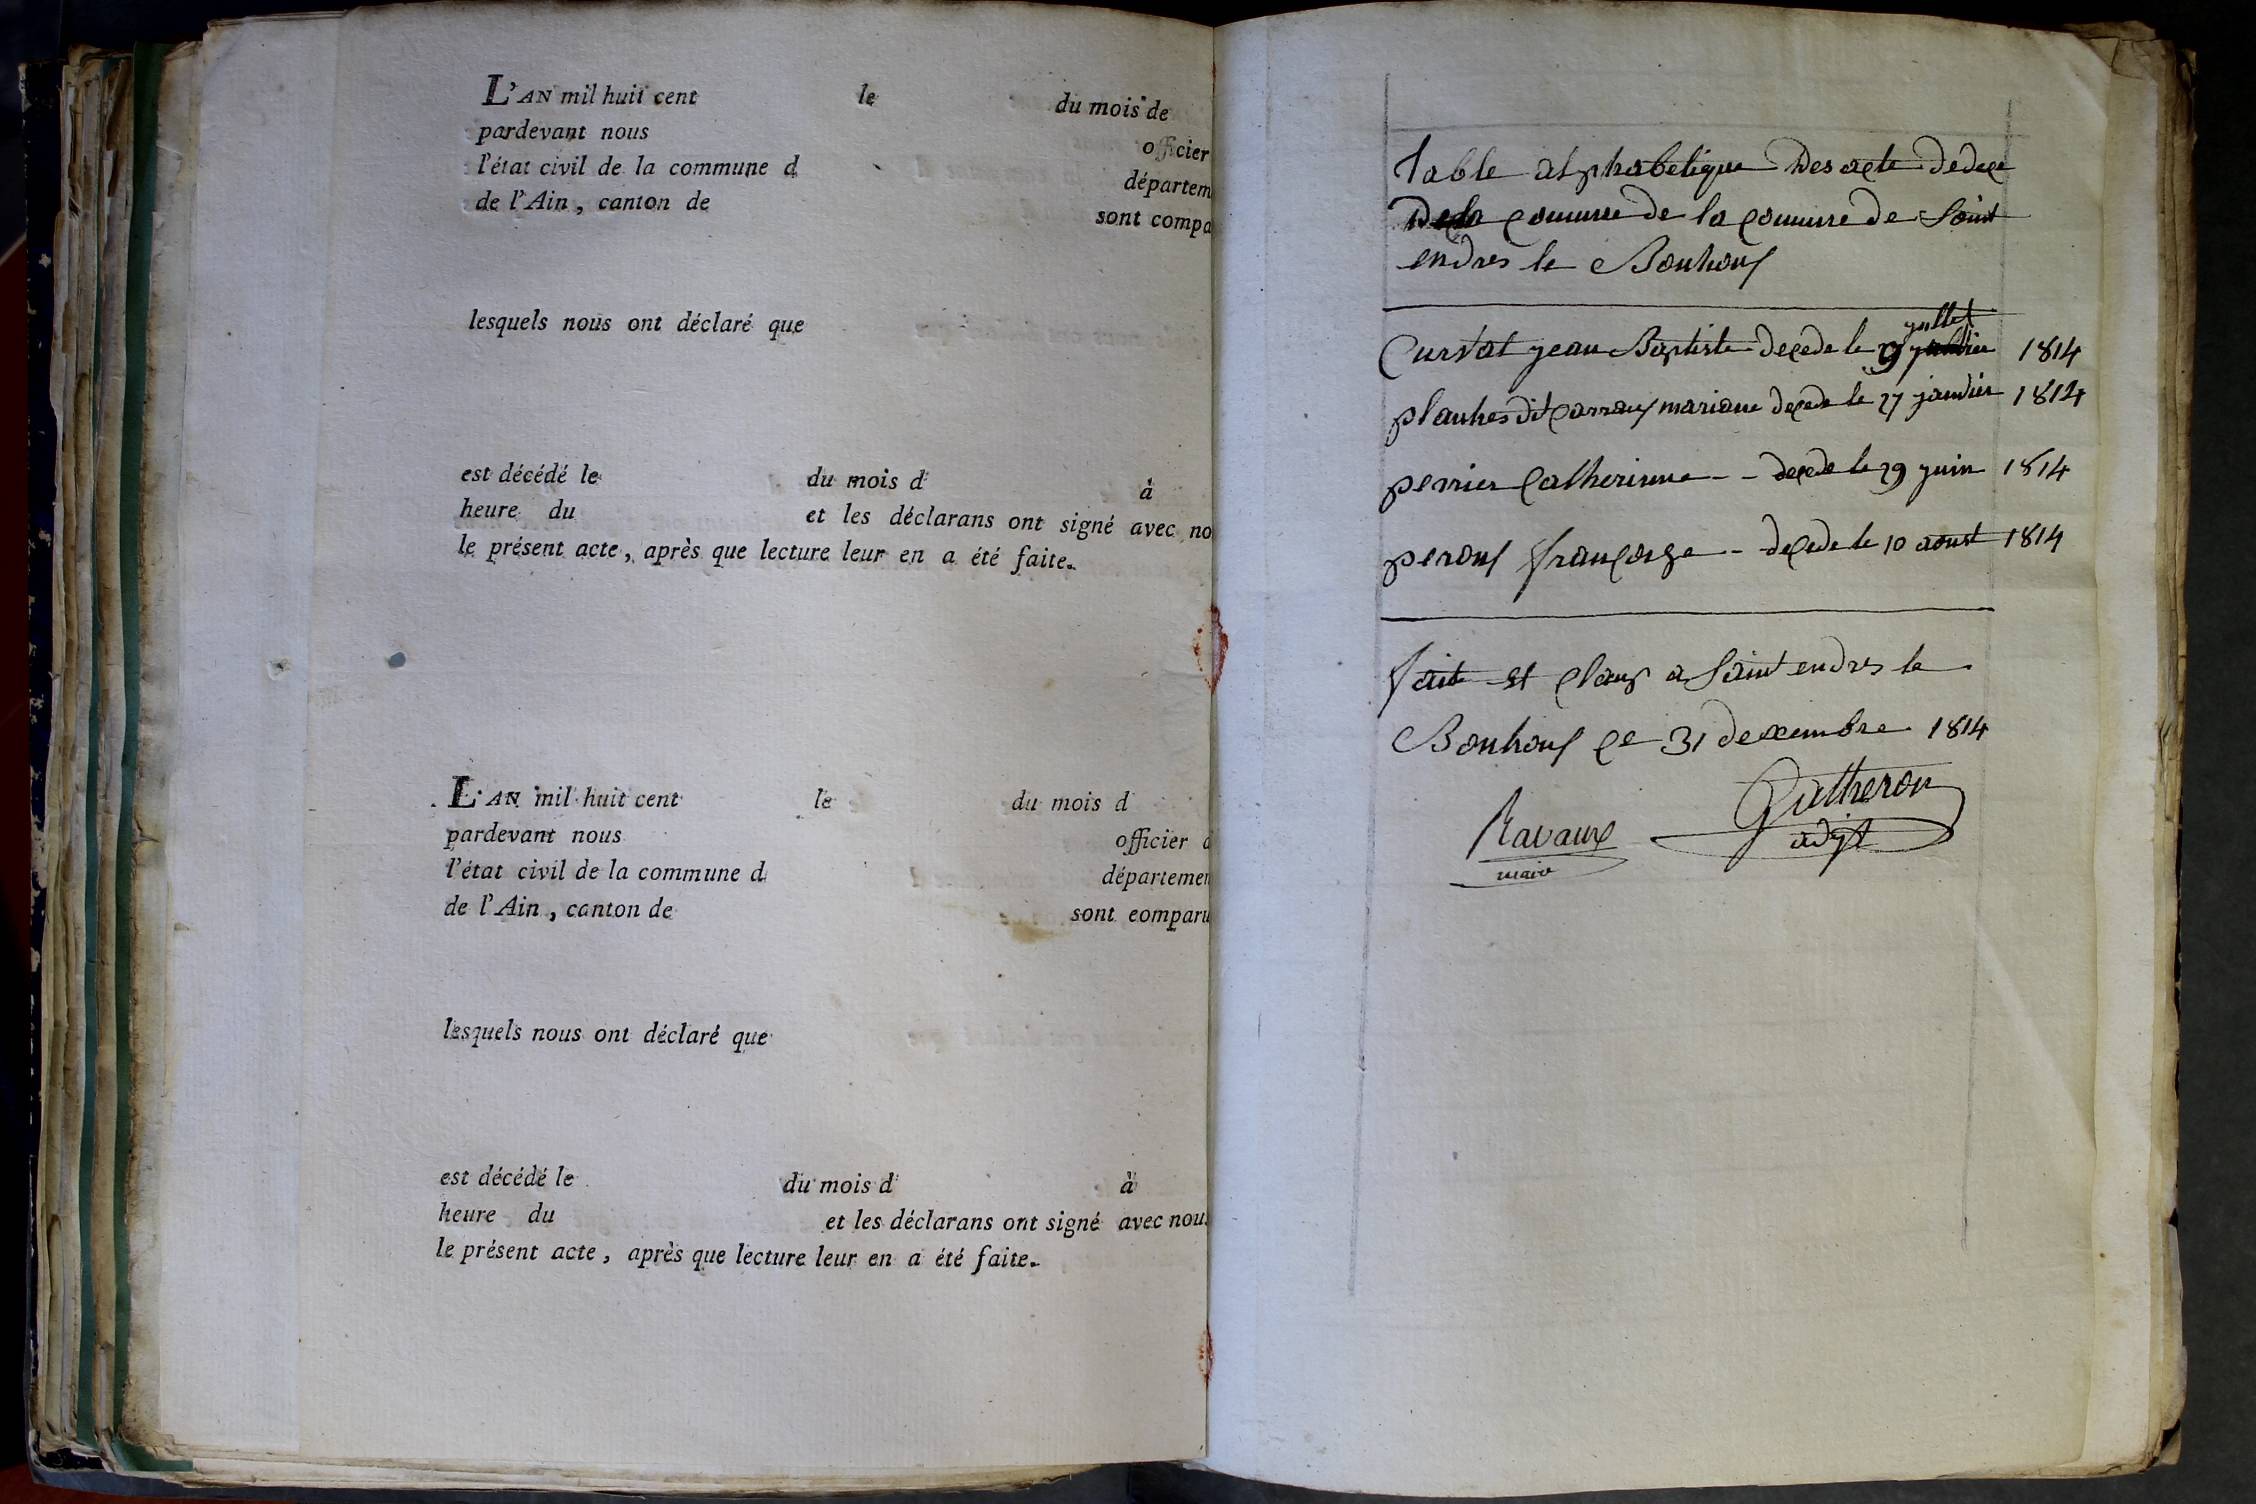 L'AN mil huit cent le du mois de
pardevant nous officier
l'état civil de la commune d départem
de l'Ain, canton de sont compa
lesquels nous ont déclaré que
est décédé le du mois d à
heure du et les déclarans ont signé avec no
le présent acte, après que lecture leur en a été faite.
L'AN mil huit cent le du mois d
pardevant nous officier d
l'état civil de la commune d départemen
de l'Ain, canton de sont comparu
lesquels nous ont déclaré que
est décédé le du mois d à
heure du et les déclarans ont signé avec nous
le présent acte, après que lecture leur en a été faite.
Table alphabetique Des acte de dece
De la comune de la comune de Saint
endres le Bouhouf
juillet
Curvat jean Baptiste decede le 9 1814
planches dit carraux mariane decede le 27 janvier 1814
perrier Catherinne -- decede le 29 juin 1814
perouf françoise - decede le 10 aoust 1814
fait et claus a Saint endres le
Bouhouf ce 31 decembre 1814
Gutheron
Ravaux adjt
maire